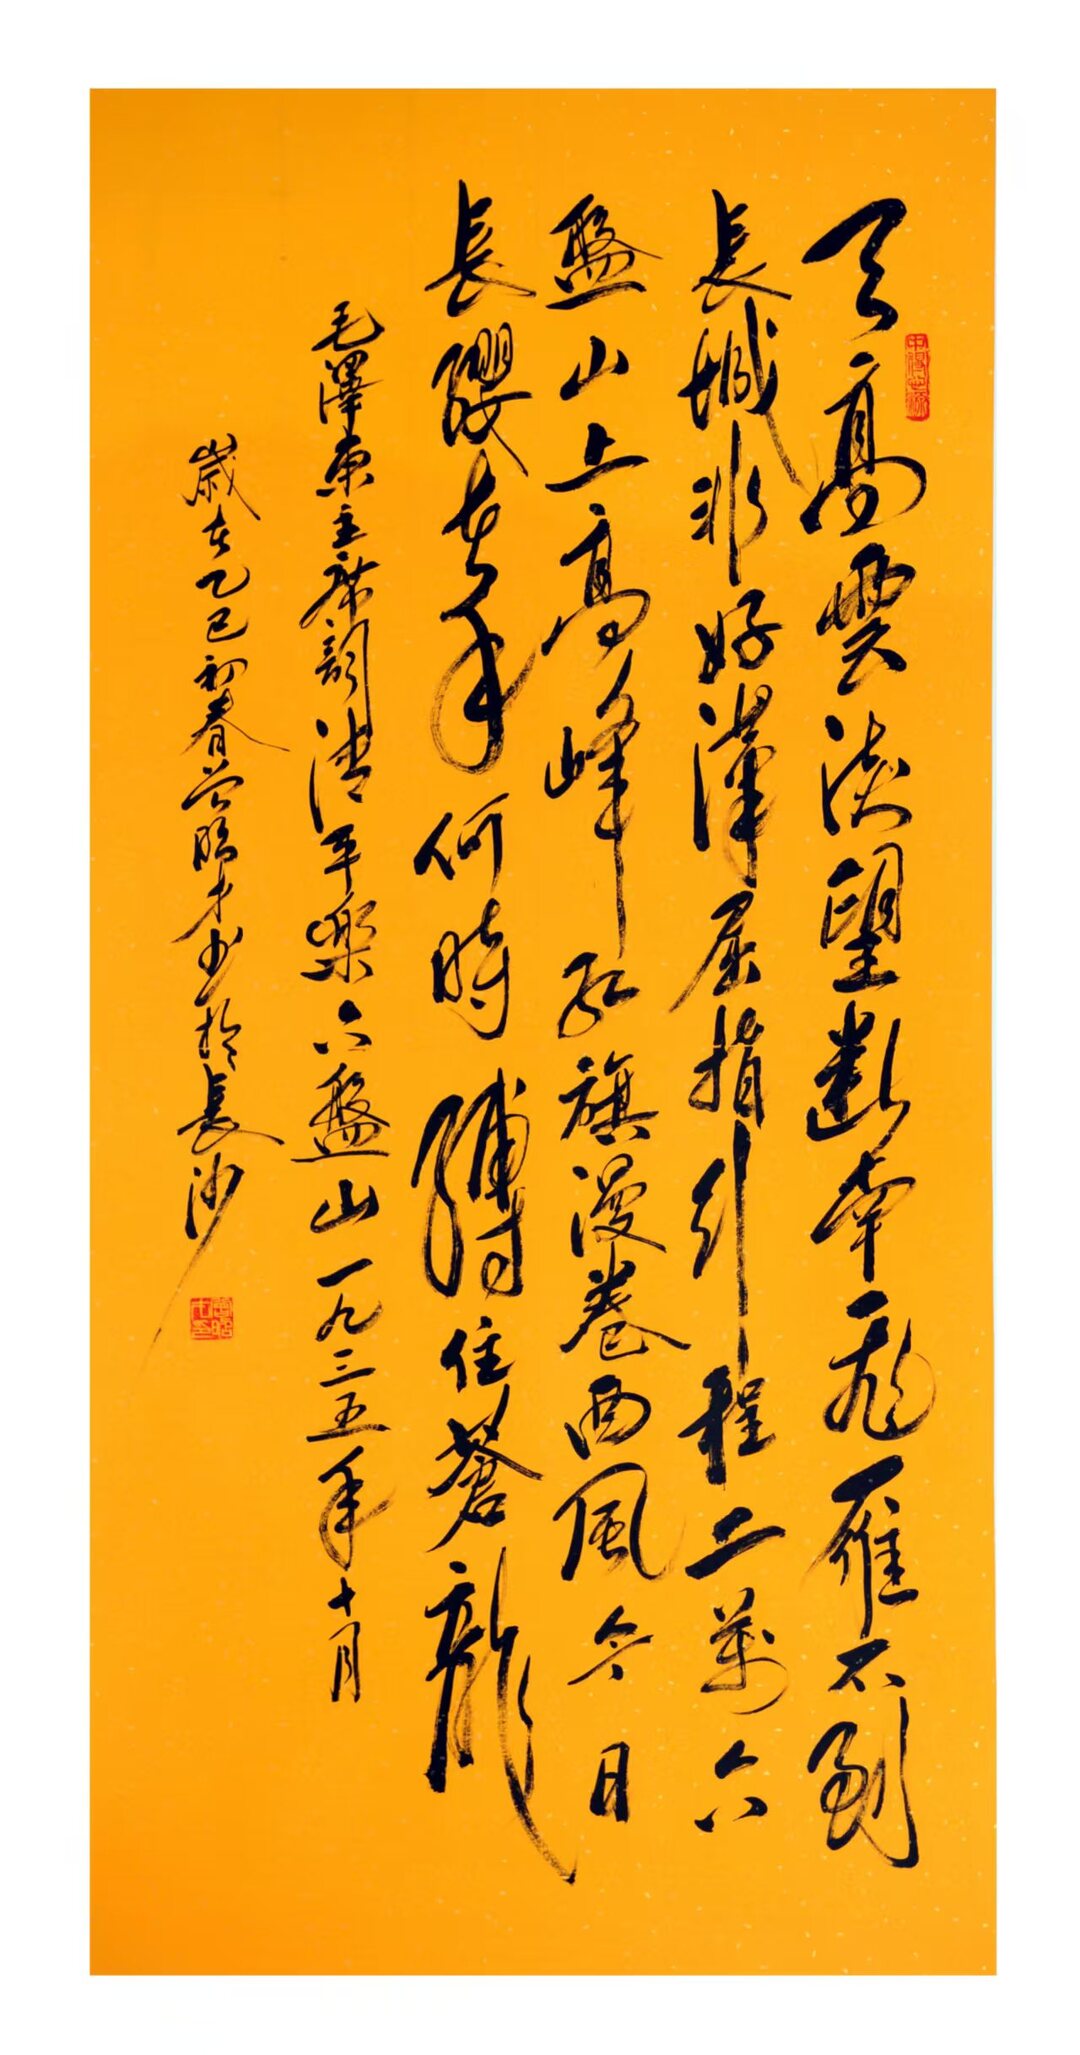 天高雲淡望斷南飛雁不到
長城非好漢屈指行程二萬六
盤山上高峰紅旗漫卷西風今日
長纓在手何時縛住蒼龍
毛澤東主席詞清平樂六盤山一九三五年十月
歲在乙巳初春曾昭才书於長沙